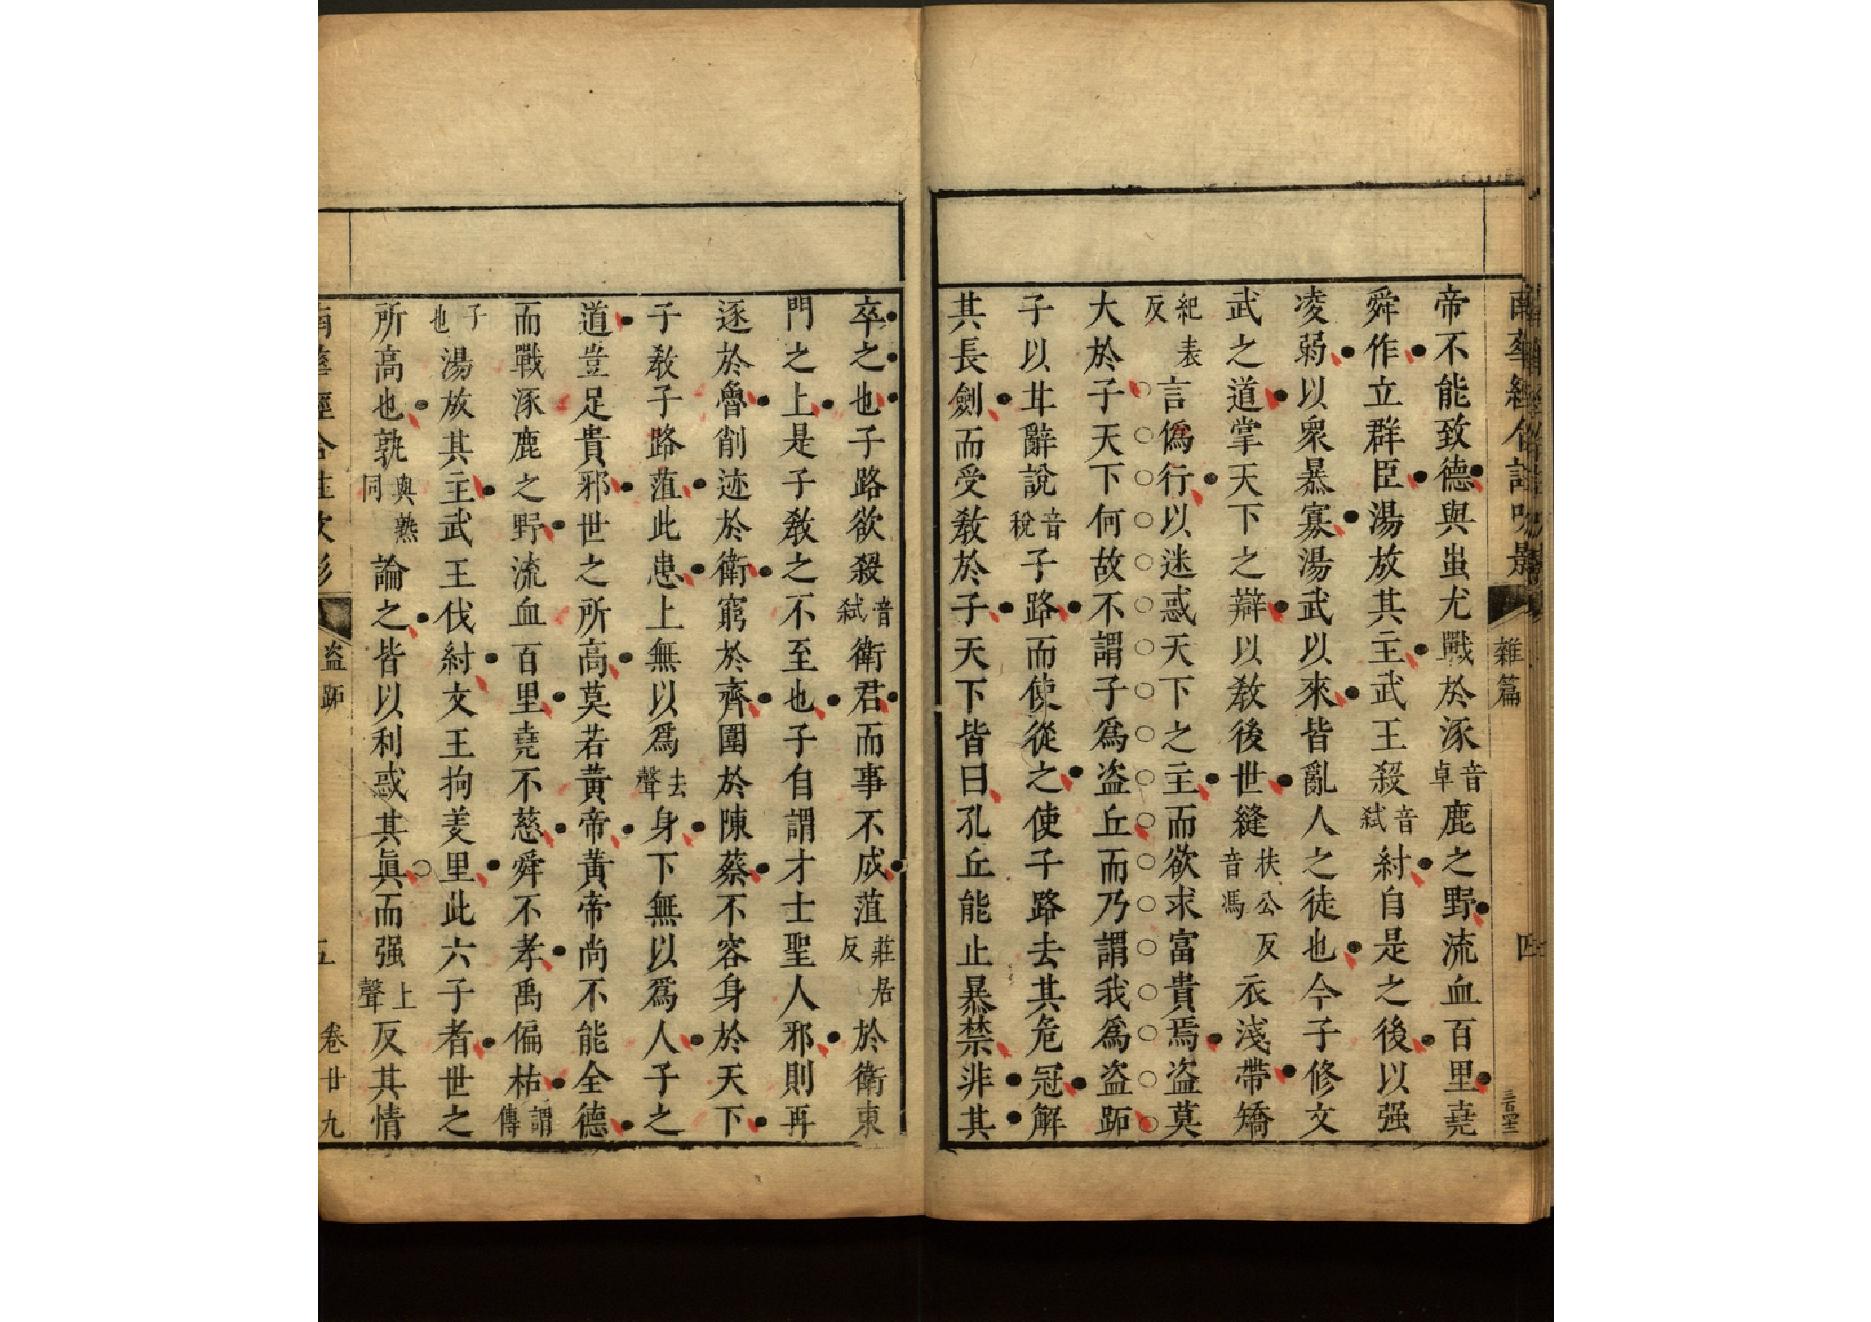 帝不能致德與蚩尤戰於涿音卓鹿之野流血百里堯
舜作立群臣湯放其主武王殺音弑紂自是之後以强
凌弱以衆暴寡湯武以來皆亂人之徒也今子修文
武之道掌天下之辯以敎後世縫扶公反音馮衣淺帶矯
紀表反言僞行以迷惑天下之主而欲求富貴焉盗莫
大於子天下何故不謂子爲盗丘而乃謂我爲盗跖
子以甘辭說音稅子路而使從之使子路去其危冠解
其長劍而受敎於子天下皆曰孔丘能止暴禁非其
卒之也子路欲殺音弑衛君而事不成菹莊居反於衛東
門之上是子敎之不至也子自謂才士聖人邪則再
逐於魯削迹於衛窮於齊圍於陳蔡不容身於天下
子敎子路菹此患上無以爲去聲身下無以爲人子之
道豈足貴邪世之所高莫若黃帝黃帝尚不能全德
而戰涿鹿之野流血百里堯不慈舜不孝禹偏枯謂傳
子也湯放其主武王伐紂文王拘羑里此六子者世之
所高也孰與熟同論之皆以利惑其眞而强上聲反其情
雜篇
盗跖
五
卷廿九